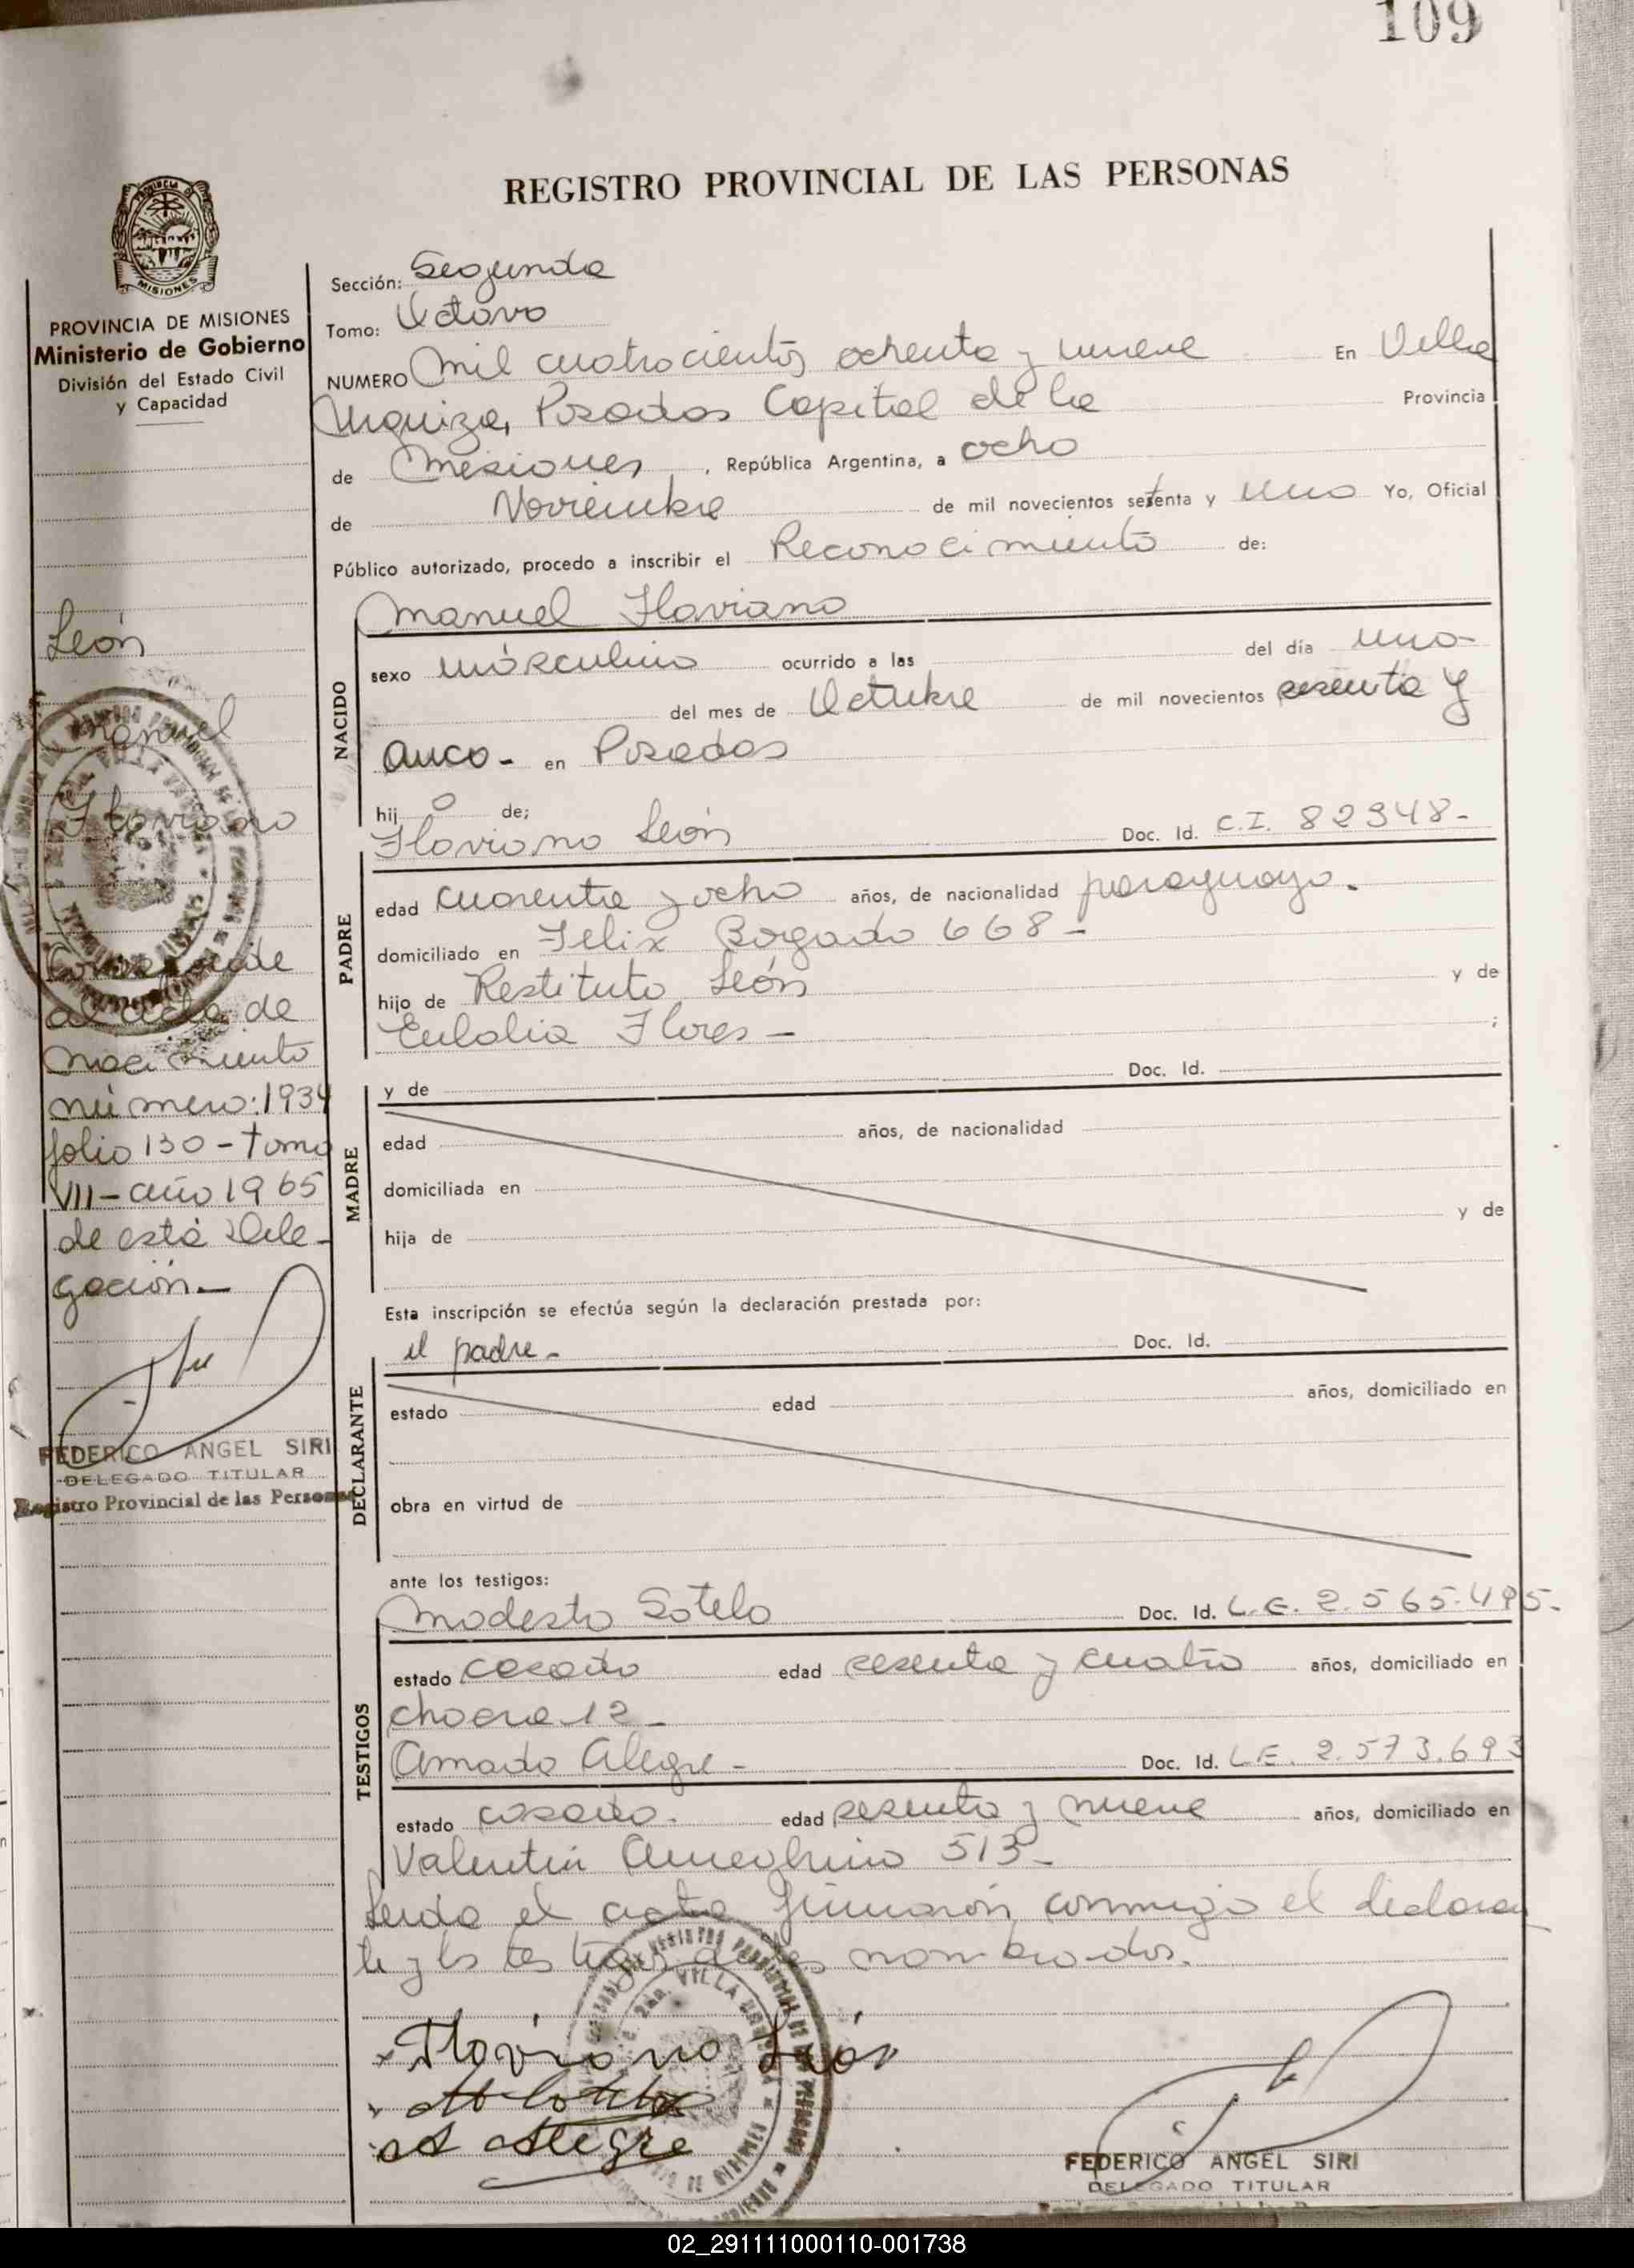 109
REGISTRO PROVINCIAL DE LAS PERSONAS
MISIONES
PROVINCIA DE MISIONES
Ministerio de Gobierno
División del Estado Civil
y Capacidad
León
Manuel
Flaviano
Corresponde
al acta de
nacimiento
número: 1934
folio 130 - tomo
VII - año 1965
de está Dele-
gación.-
FEDERICO ANGEL SIRI
DELEGADO TITULAR
Registro Provincial de las Personas
Sección: Segunda
Tomo: Octavo
NUMERO Mil cuatrocientos ochenta y nueve En Villa
Urquiza, Posadas Capital de la Provincia
de Misiones, República Argentina, a ocho
de Noviembre de mil novecientos setenta y uno Yo, Oficial
Público autorizado, procedo a inscribir el Reconocimiento de:
Manuel Flaviano
NACIDO
sexo másculino ocurrido a las del día uno-
del mes de Octubre de mil novecientos sesenta y
cinco- en Posadas
hijo de;
Flaviano León Doc. Id. C.I. 82948-
PADRE
edad cuarenta y ocho años, de nacionalidad paraguayo.
domiciliado en Felix Bogado 668-
hijo de Restituto León y de
Eulalia Flores- ;
y de Doc. Id.
MADRE
edad años, de nacionalidad
domiciliada en
hija de y de
Esta inscripción se efectúa según la declaración prestada por:
el padre- Doc. Id.
DECLARANTE
estado edad años, domiciliado en
obra en virtud de
ante los testigos:
Modesto Sotelo Doc. Id. L.E. 2.565.495-
TESTIGOS
estado casado edad sesenta y cuatro años, domiciliado en
chacra 12-
Amado Alegre- Doc. Id. L.E. 2.573.693
estado casado. edad sesenta y nueve años, domiciliado en
Valentin Ameghino 513-
Leida el acta firmarón conmigo el declaran
te y los testigos antes nombrados.
Flaviano León
M Sotelo
A Alegre
FEDERICO ANGEL SIRI
DELEGADO TITULAR
02_291111000110-001738